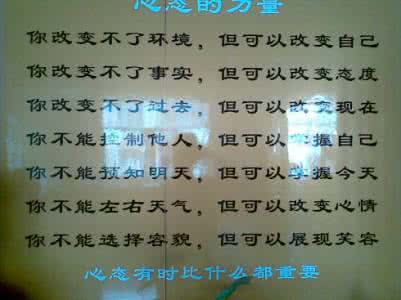 心态的力量
你改变不了环境，但可以改变自己
你改变不了事实，但可以改变态度
你改变不了过去，但可以改变现在
你不能控制他人，但可以掌握自己
你不能预知明天，但可以掌握今天
你不能左右天气，但可以改变心情
你不能选择容貌，但可以展现笑容
心态有时比什么都重要